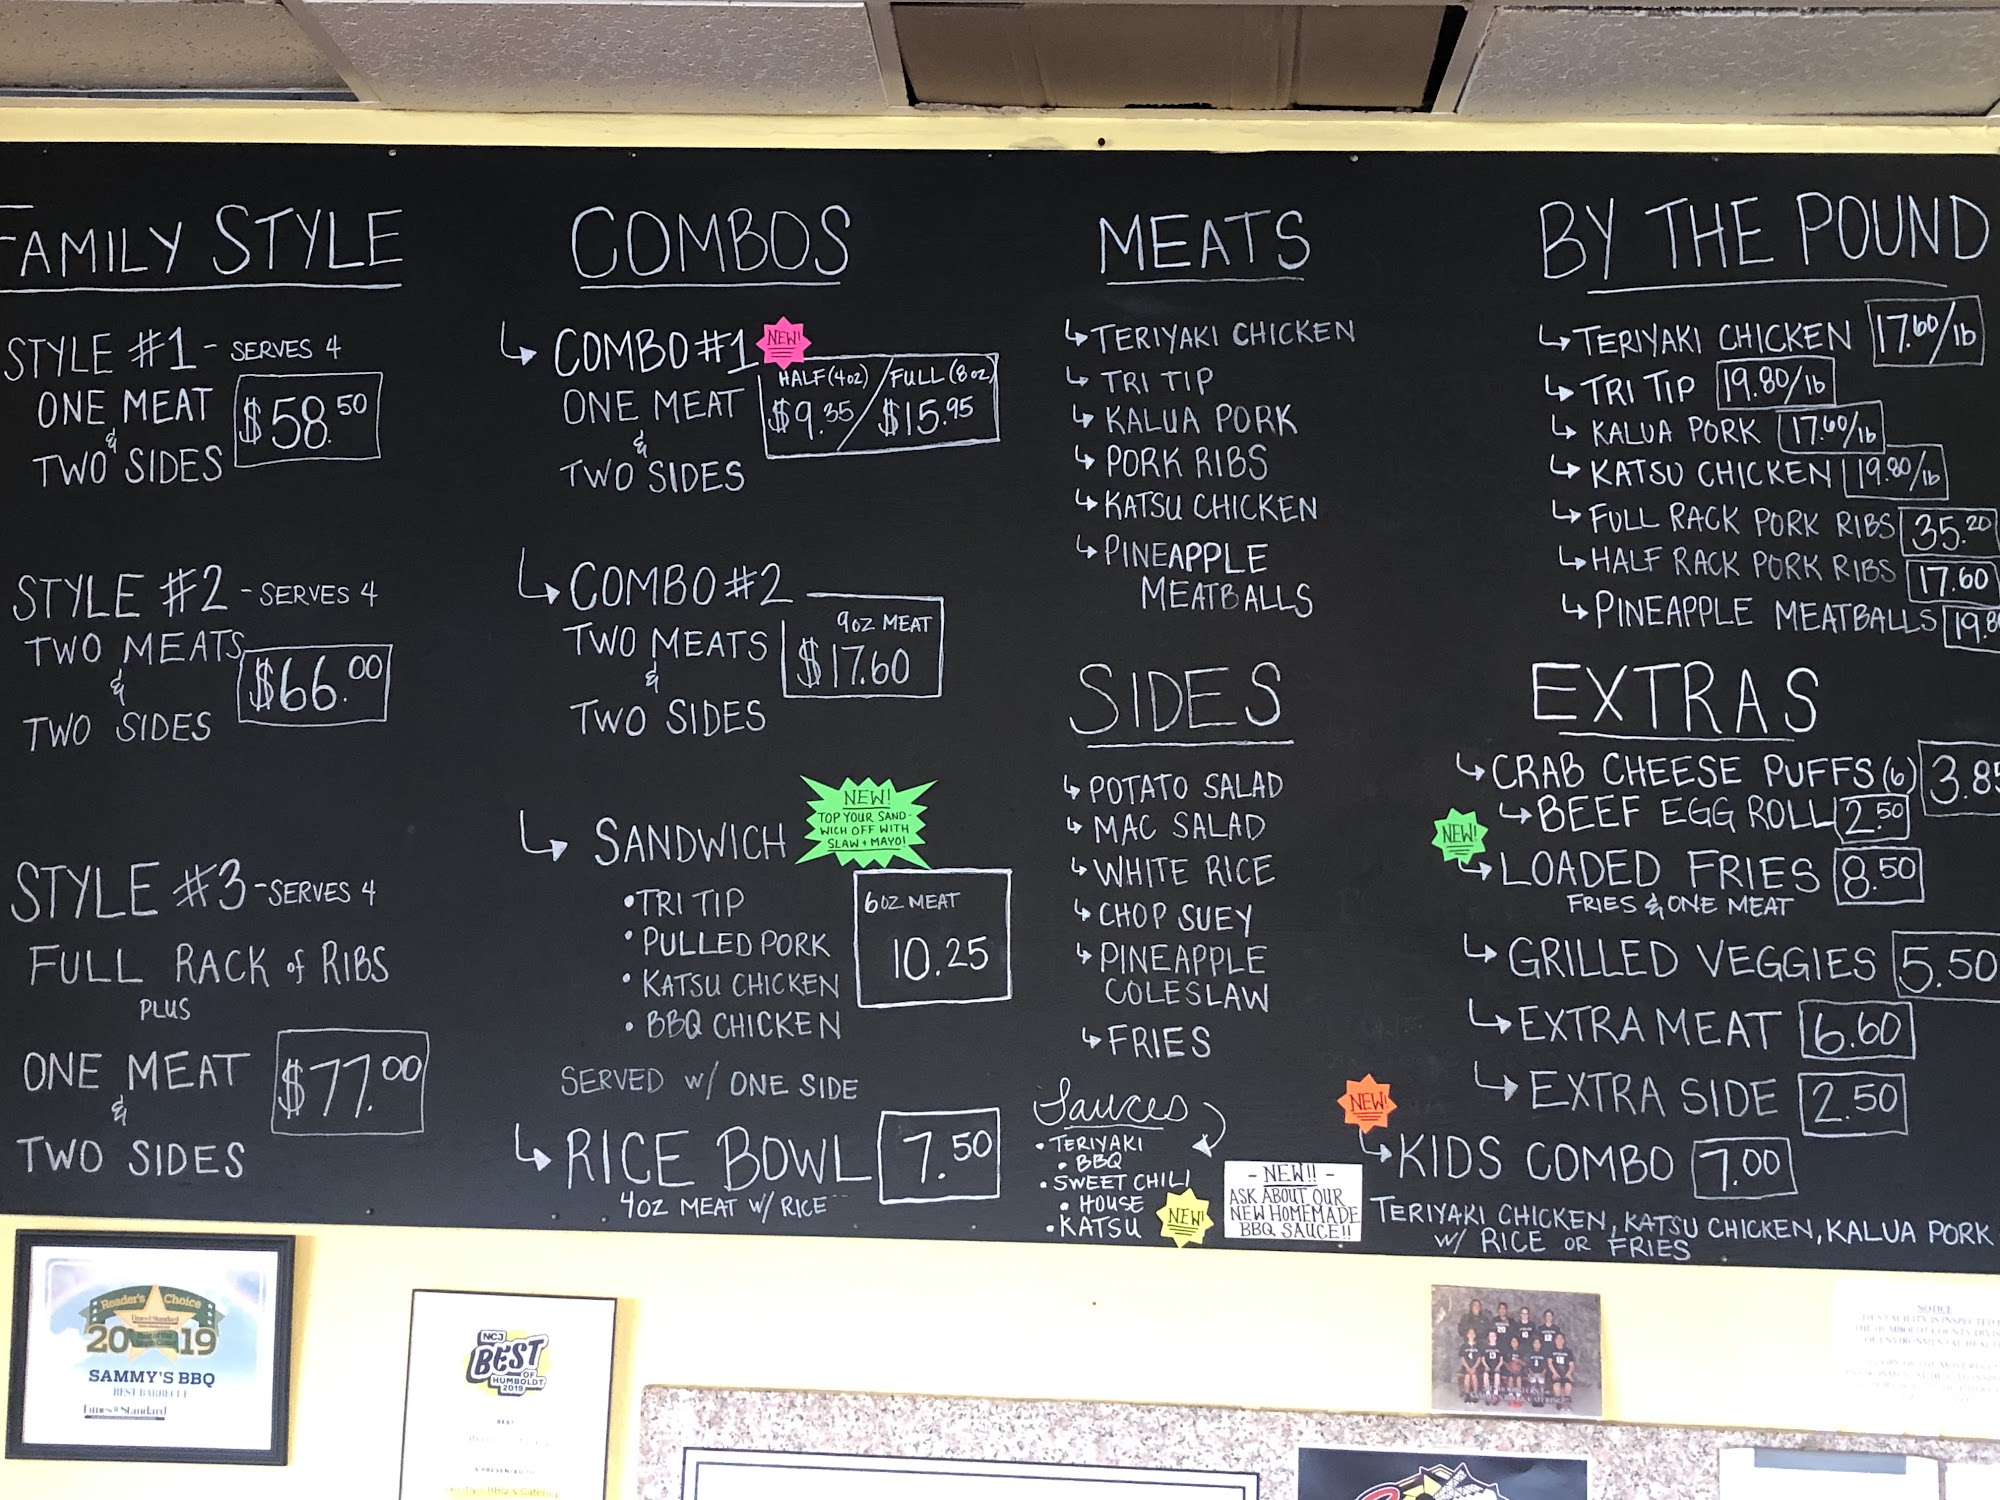 FAMILY STYLE
STYLE #1 - SERVES 4
ONE MEAT
&
TWO SIDES
$58.50
STYLE #2 - SERVES 4
TWO MEATS
&
TWO SIDES
$66.00
STYLE #3 - SERVES 4
FULL RACK of RIBS
PLUS
ONE MEAT
&
TWO SIDES
$77.00
COMBOS
COMBO #1
NEW!
ONE MEAT
&
TWO SIDES
HALF (4oz) / FULL (8oz)
$9.35 / $15.95
COMBO #2
TWO MEATS
&
TWO SIDES
9oz MEAT
$17.60
SANDWICH
NEW!
TOP YOUR SAND-
WICH OFF WITH
SLAW + MAYO!
• TRI TIP
• PULLED PORK
• KATSU CHICKEN
• BBQ CHICKEN
6oz MEAT
10.25
SERVED w/ ONE SIDE
RICE BOWL 7.50
4oz MEAT w/ RICE
MEATS
TERIYAKI CHICKEN
TRI TIP
KALUA PORK
PORK RIBS
KATSU CHICKEN
PINEAPPLE
MEATBALLS
SIDES
POTATO SALAD
MAC SALAD
WHITE RICE
CHOP SUEY
PINEAPPLE
COLESLAW
FRIES
Sauces
• TERIYAKI
• BBQ
• SWEET CHILI
• HOUSE
• KATSU
NEW!
- NEW!! -
ASK ABOUT OUR
NEW HOMEMADE
BBQ SAUCE!!
BY THE POUND
TERIYAKI CHICKEN 17.60/lb
TRI TIP 19.80/lb
KALUA PORK 17.60/lb
KATSU CHICKEN 19.80/lb
FULL RACK PORK RIBS 35.20
HALF RACK PORK RIBS 17.60
PINEAPPLE MEATBALLS 19.8
EXTRAS
CRAB CHEESE PUFFS (6) 3.85
BEEF EGG ROLL 2.50
NEW!
LOADED FRIES 8.50
FRIES & ONE MEAT
GRILLED VEGGIES 5.50
EXTRA MEAT 6.60
EXTRA SIDE 2.50
NEW!
KIDS COMBO 7.00
TERIYAKI CHICKEN, KATSU CHICKEN, KALUA PORK
w/ RICE OR FRIES
Reader's Choice
Times Standard
2019
SAMMY'S BBQ
BEST BARBECUE
Times Standard
NCJ
BEST
OF
HUMBOLDT
2019
BEST
NOTICE